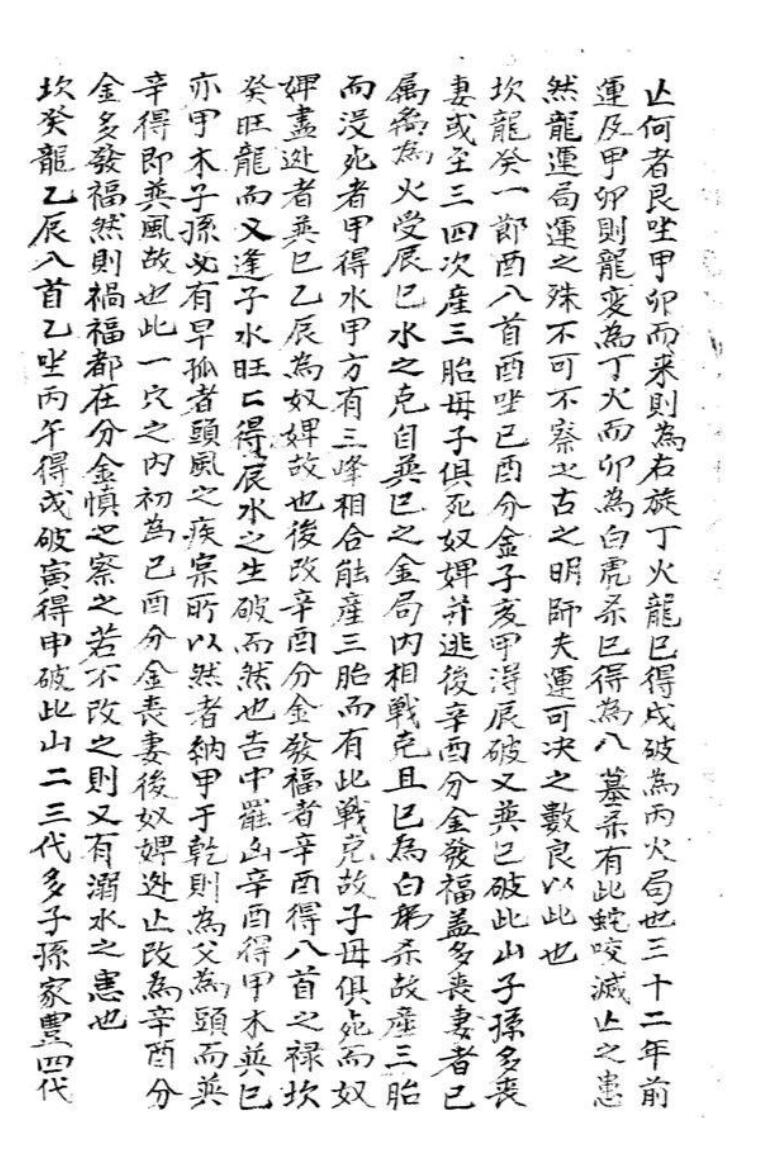 亾何者艮坐甲卯而来則為右旋丁火龍巳得戌破為丙火局也三十二年前
運及甲卯則龍変為丁火而卯為白虎杀巳得為八墓杀有此蛇咬滅亾之患
然龍運局運之殊不可不察也古之明師夫運可决之數良以此也
坎龍癸一節酉八首酉坐己酉分金子亥甲淂辰破又巽巳破此山子孫多丧
妻或至三四次産三胎母子俱死奴婢并逃後辛酉分金發福盖多丧妻者己
属离為火受辰巳水之克自巽巳之金局内相戰克且巳為白虎杀故産三胎
而没死者甲得水甲方有三峰相合能産三胎而有此戰克故子母俱死而奴
婢盡逃者巽巳乙辰為奴婢故也後改辛酉分金發福者辛酉得八首之禄坎
癸旺龍而又逢子水旺匕得辰水之生破而然也告中罷出辛酉得甲木巽巳
亦甲木子孫必有早孤者頭風之疾宲所以然者納甲于乾則為父為頭而巽
辛得即巽風故也此一穴之内初為己酉分金丧妻後奴婢逃亾改為辛酉分
金多發福然則禍福都在分金慎之察之若不改之則又有溺水之患也
坎癸龍乙辰入首乙坐丙午得戌破寅得申破此山二三代多子孫家豊四代